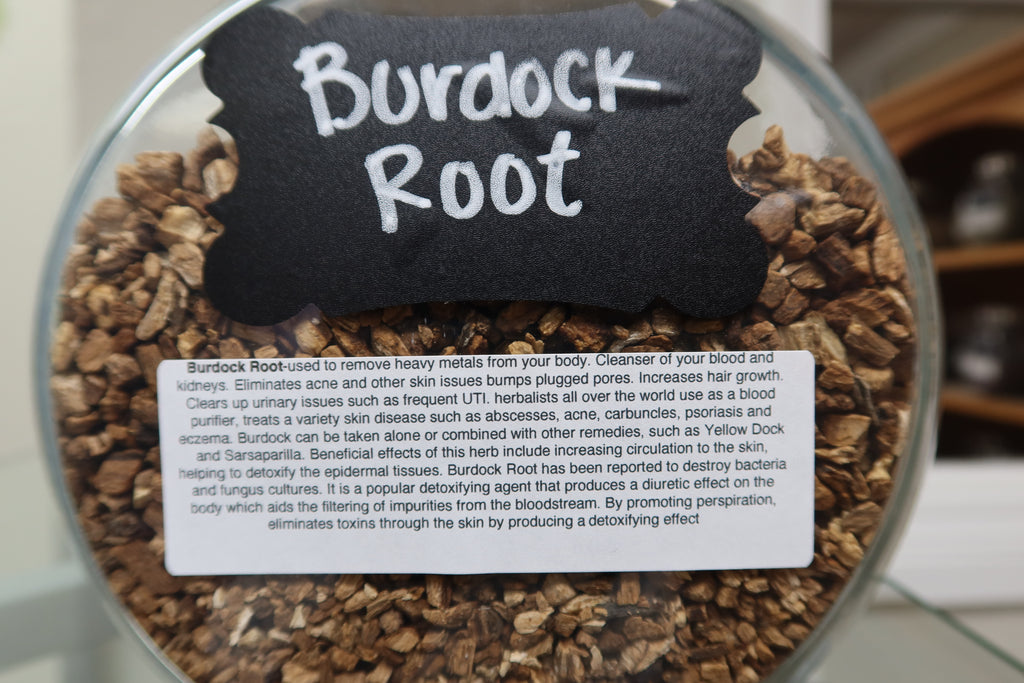 Burdock
Root
Burdock Root-used to remove heavy metals from your body. Cleanser of your blood and
kidneys. Eliminates acne and other skin issues bumps plugged pores. Increases hair growth.
Clears up urinary issues such as frequent UTI. herbalists all over the world use as a blood
purifier, treats a variety skin disease such as abscesses, acne, carbuncles, psoriasis and
eczema. Burdock can be taken alone or combined with other remedies, such as Yellow Dock
and Sarsaparilla. Beneficial effects of this herb include increasing circulation to the skin,
helping to detoxify the epidermal tissues. Burdock Root has been reported to destroy bacteria
and fungus cultures. It is a popular detoxifying agent that produces a diuretic effect on the
body which aids the filtering of impurities from the bloodstream. By promoting perspiration,
eliminates toxins through the skin by producing a detoxifying effect